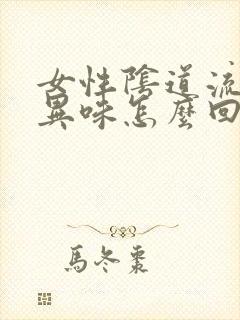 女性陰道流
異味怎麼回
馬冬棗